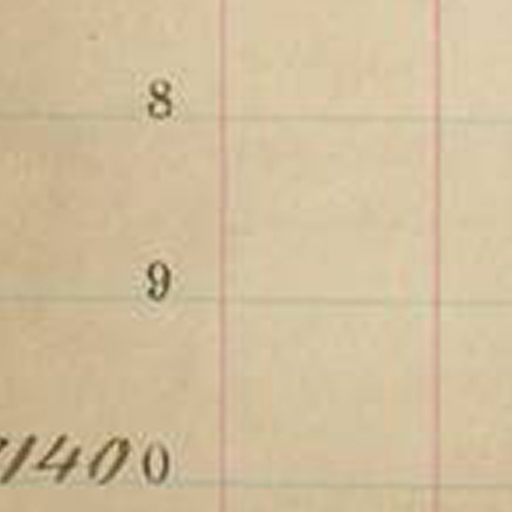 8
9
1140 0